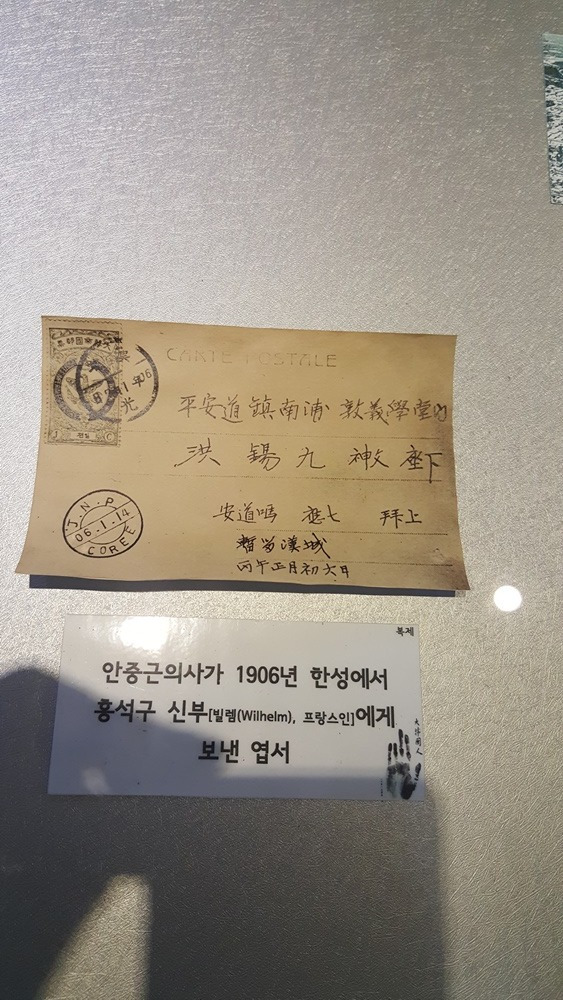 CARTE POSTALE
平安道鎮南浦 敦義學堂內
洪錫九 神父 座下
安道嗎 應七 拜上
暫留漢城
丙午正月初六日
J.N.P
06.1.14
COREE
복제
안중근의사가 1906년 한성에서
홍석구 신부[빌렘(Wilhelm), 프랑스인]에게
보낸 엽서
大韓國人